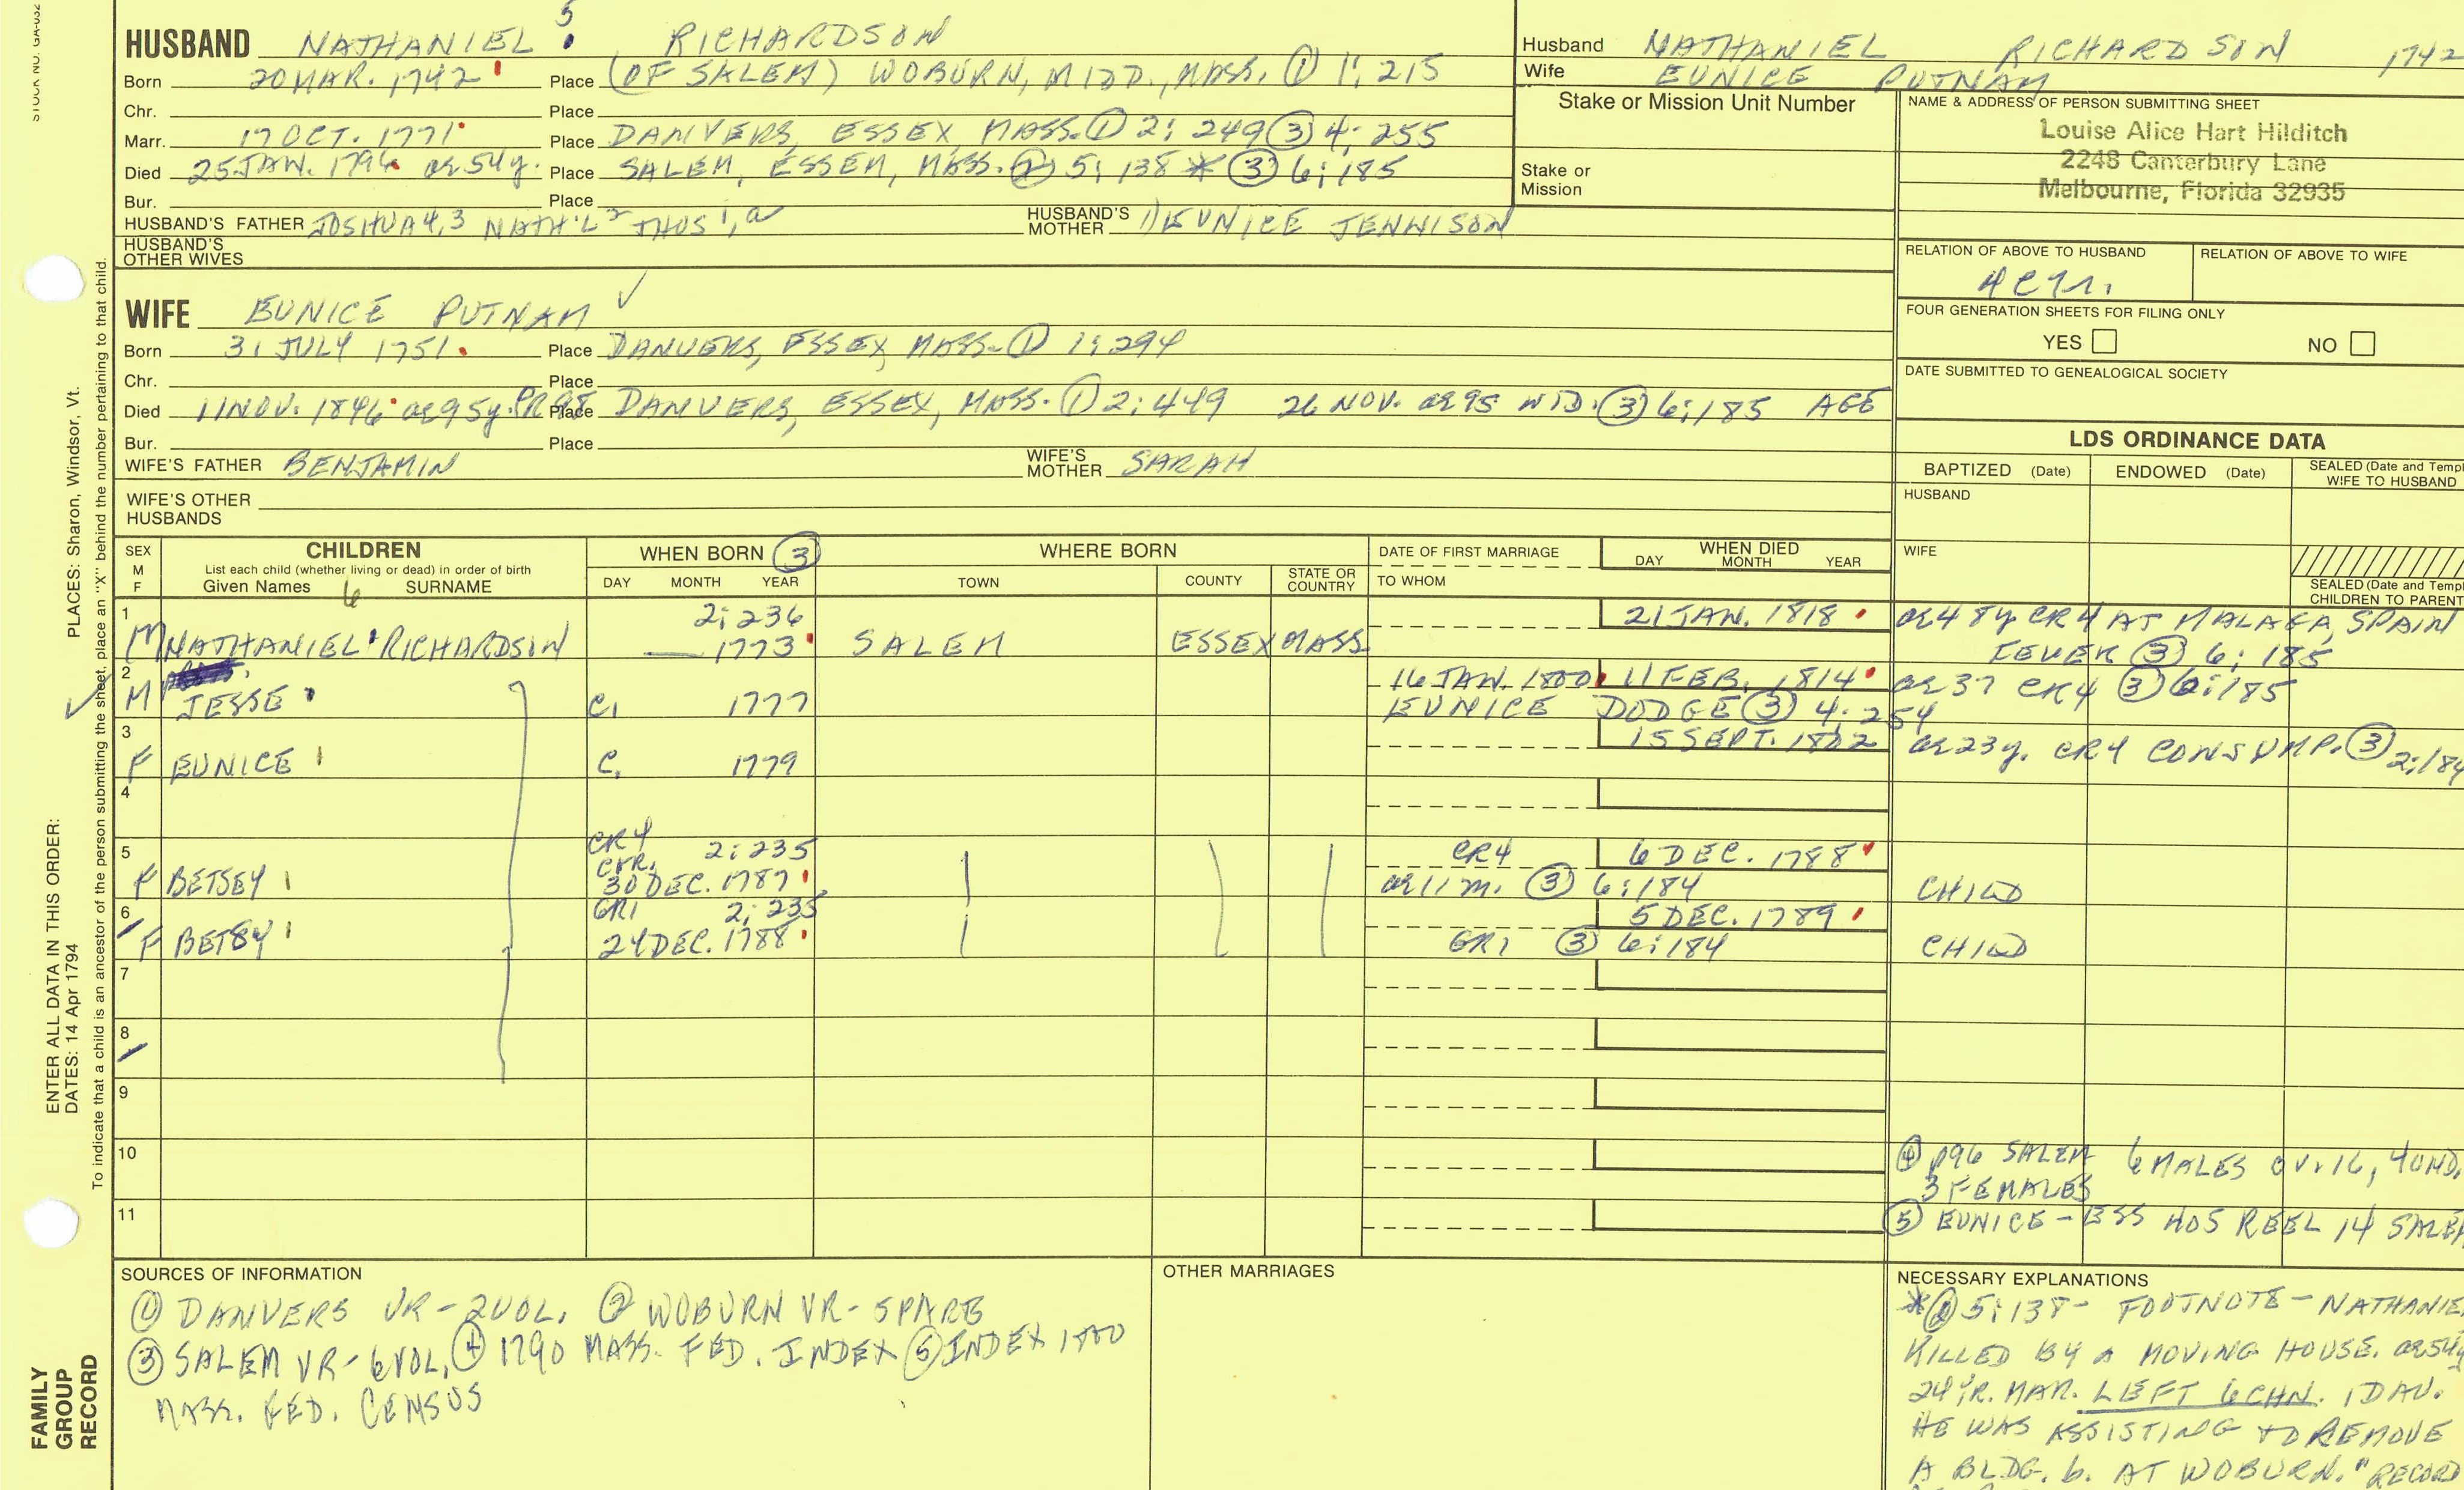 STOCK NO. GA-032
5
HUSBAND NATHANIEL RICHARDSON
Born 20 MAR. 1742 Place (OF SALEM) WOBURN, MIDD., MASS. ① 1; 215
Chr. Place
Marr. 17 OCT. 1771 Place DANVERS, ESSEX, MASS. ① 2; 249 ③ 4; 255
Died 25 JAN. 1796 ae 54y. Place SALEM, ESSEX, MASS. ② 5; 138 * ③ 6; 185
Bur. Place
HUSBAND'S FATHER JOSHUA 4,3 NATH'L 2 THOS 1, a HUSBAND'S MOTHER 1) EUNICE JENNISON
HUSBAND'S OTHER WIVES
WIFE EUNICE PUTNAM ✓
Born 31 JULY 1751 Place DANVERS, ESSEX, MASS. ① 1; 294
Chr. Place
Died 11 NOV. 1846 ae 95y. PR98 Place DANVERS, ESSEX, MASS. ① 2; 449 26 NOV. ae 95 WID. ③ 6; 185 AGE
Bur. Place
WIFE'S FATHER BENJAMIN WIFE'S MOTHER SARAH
WIFE'S OTHER HUSBANDS
Husband NATHANIEL RICHARDSON 1742
Wife EUNICE PUTNAM
Stake or Mission Unit Number
Stake or Mission
NAME & ADDRESS OF PERSON SUBMITTING SHEET
Louise Alice Hart Hilditch
2248 Canterbury Lane
Melbourne, Florida 32935
RELATION OF ABOVE TO HUSBAND RELATION OF ABOVE TO WIFE
FOUR GENERATION SHEETS FOR FILING ONLY
YES NO
DATE SUBMITTED TO GENEALOGICAL SOCIETY
LDS ORDINANCE DATA
BAPTIZED (Date) ENDOWED (Date) SEALED (Date and Templ
WIFE TO HUSBAND
HUSBAND
WIFE
SEALED (Date and Templ
CHILDREN TO PARENT
SEX M F CHILDREN WHEN BORN ③ WHERE BORN DATE OF FIRST MARRIAGE WHEN DIED
List each child (whether living or dead) in order of birth
Given Names 6 SURNAME DAY MONTH YEAR TOWN COUNTY STATE OR COUNTRY TO WHOM DAY MONTH YEAR
1 2; 236 21 JAN. 1818 ae 48y CR4 AT MALAGA, SPAIN
M NATHANIEL RICHARDSON 1773 SALEM ESSEX MASS FEVER ③ 6; 185
2 16 JAN. 1800 11 FEB. 1814 ae 37 CR4 ③ 6; 185
M JESSE C. 1777 EUNICE DODGE ③ 4; 254
3 15 SEPT. 1802 ae 23y. CR4 CONSUMP. ③ 2; 184
F EUNICE C. 1779
4
5 CR4 CHR. 2; 235 CR4 6 DEC. 1788
F BETSEY 30 DEC. 1787 ae 11 m. ③ 6; 184 CHILD
6 GR1 2; 235 5 DEC. 1789
F BETSY 24 DEC. 1788 GR1 ③ 6; 184 CHILD
7
8
9
10 ④ p96 SALEM 6 MALES OV. 16, 4 UND.
3 FEMALES
11 ⑤ EUNICE - ESS 405 REEL 14 SALEM
SOURCES OF INFORMATION
① DANVERS VR - 2 VOL. ② WOBURN VR - 5 PARTS
③ SALEM VR - 6 VOL. ④ 1790 MASS. FED. INDEX ⑤ INDEX 1800
MASS. FED. CENSUS
OTHER MARRIAGES
NECESSARY EXPLANATIONS
* ② 5; 138 - FOOTNOTE - NATHANIE
KILLED BY A MOVING HOUSE. ae 54y
24 YR. MAR. LEFT 6 CHN. 1 DAU.
HE WAS ASSISTING TO REMOVE
A BLDG. b. AT WOBURN." RECORD
PLACES: Sharon, Windsor, Vt.
ENTER ALL DATA IN THIS ORDER:
DATES: 14 Apr 1794
To indicate that a child is an ancestor of the person submitting the sheet, place an "X" behind the number pertaining to that child.
FAMILY
GROUP
RECORD